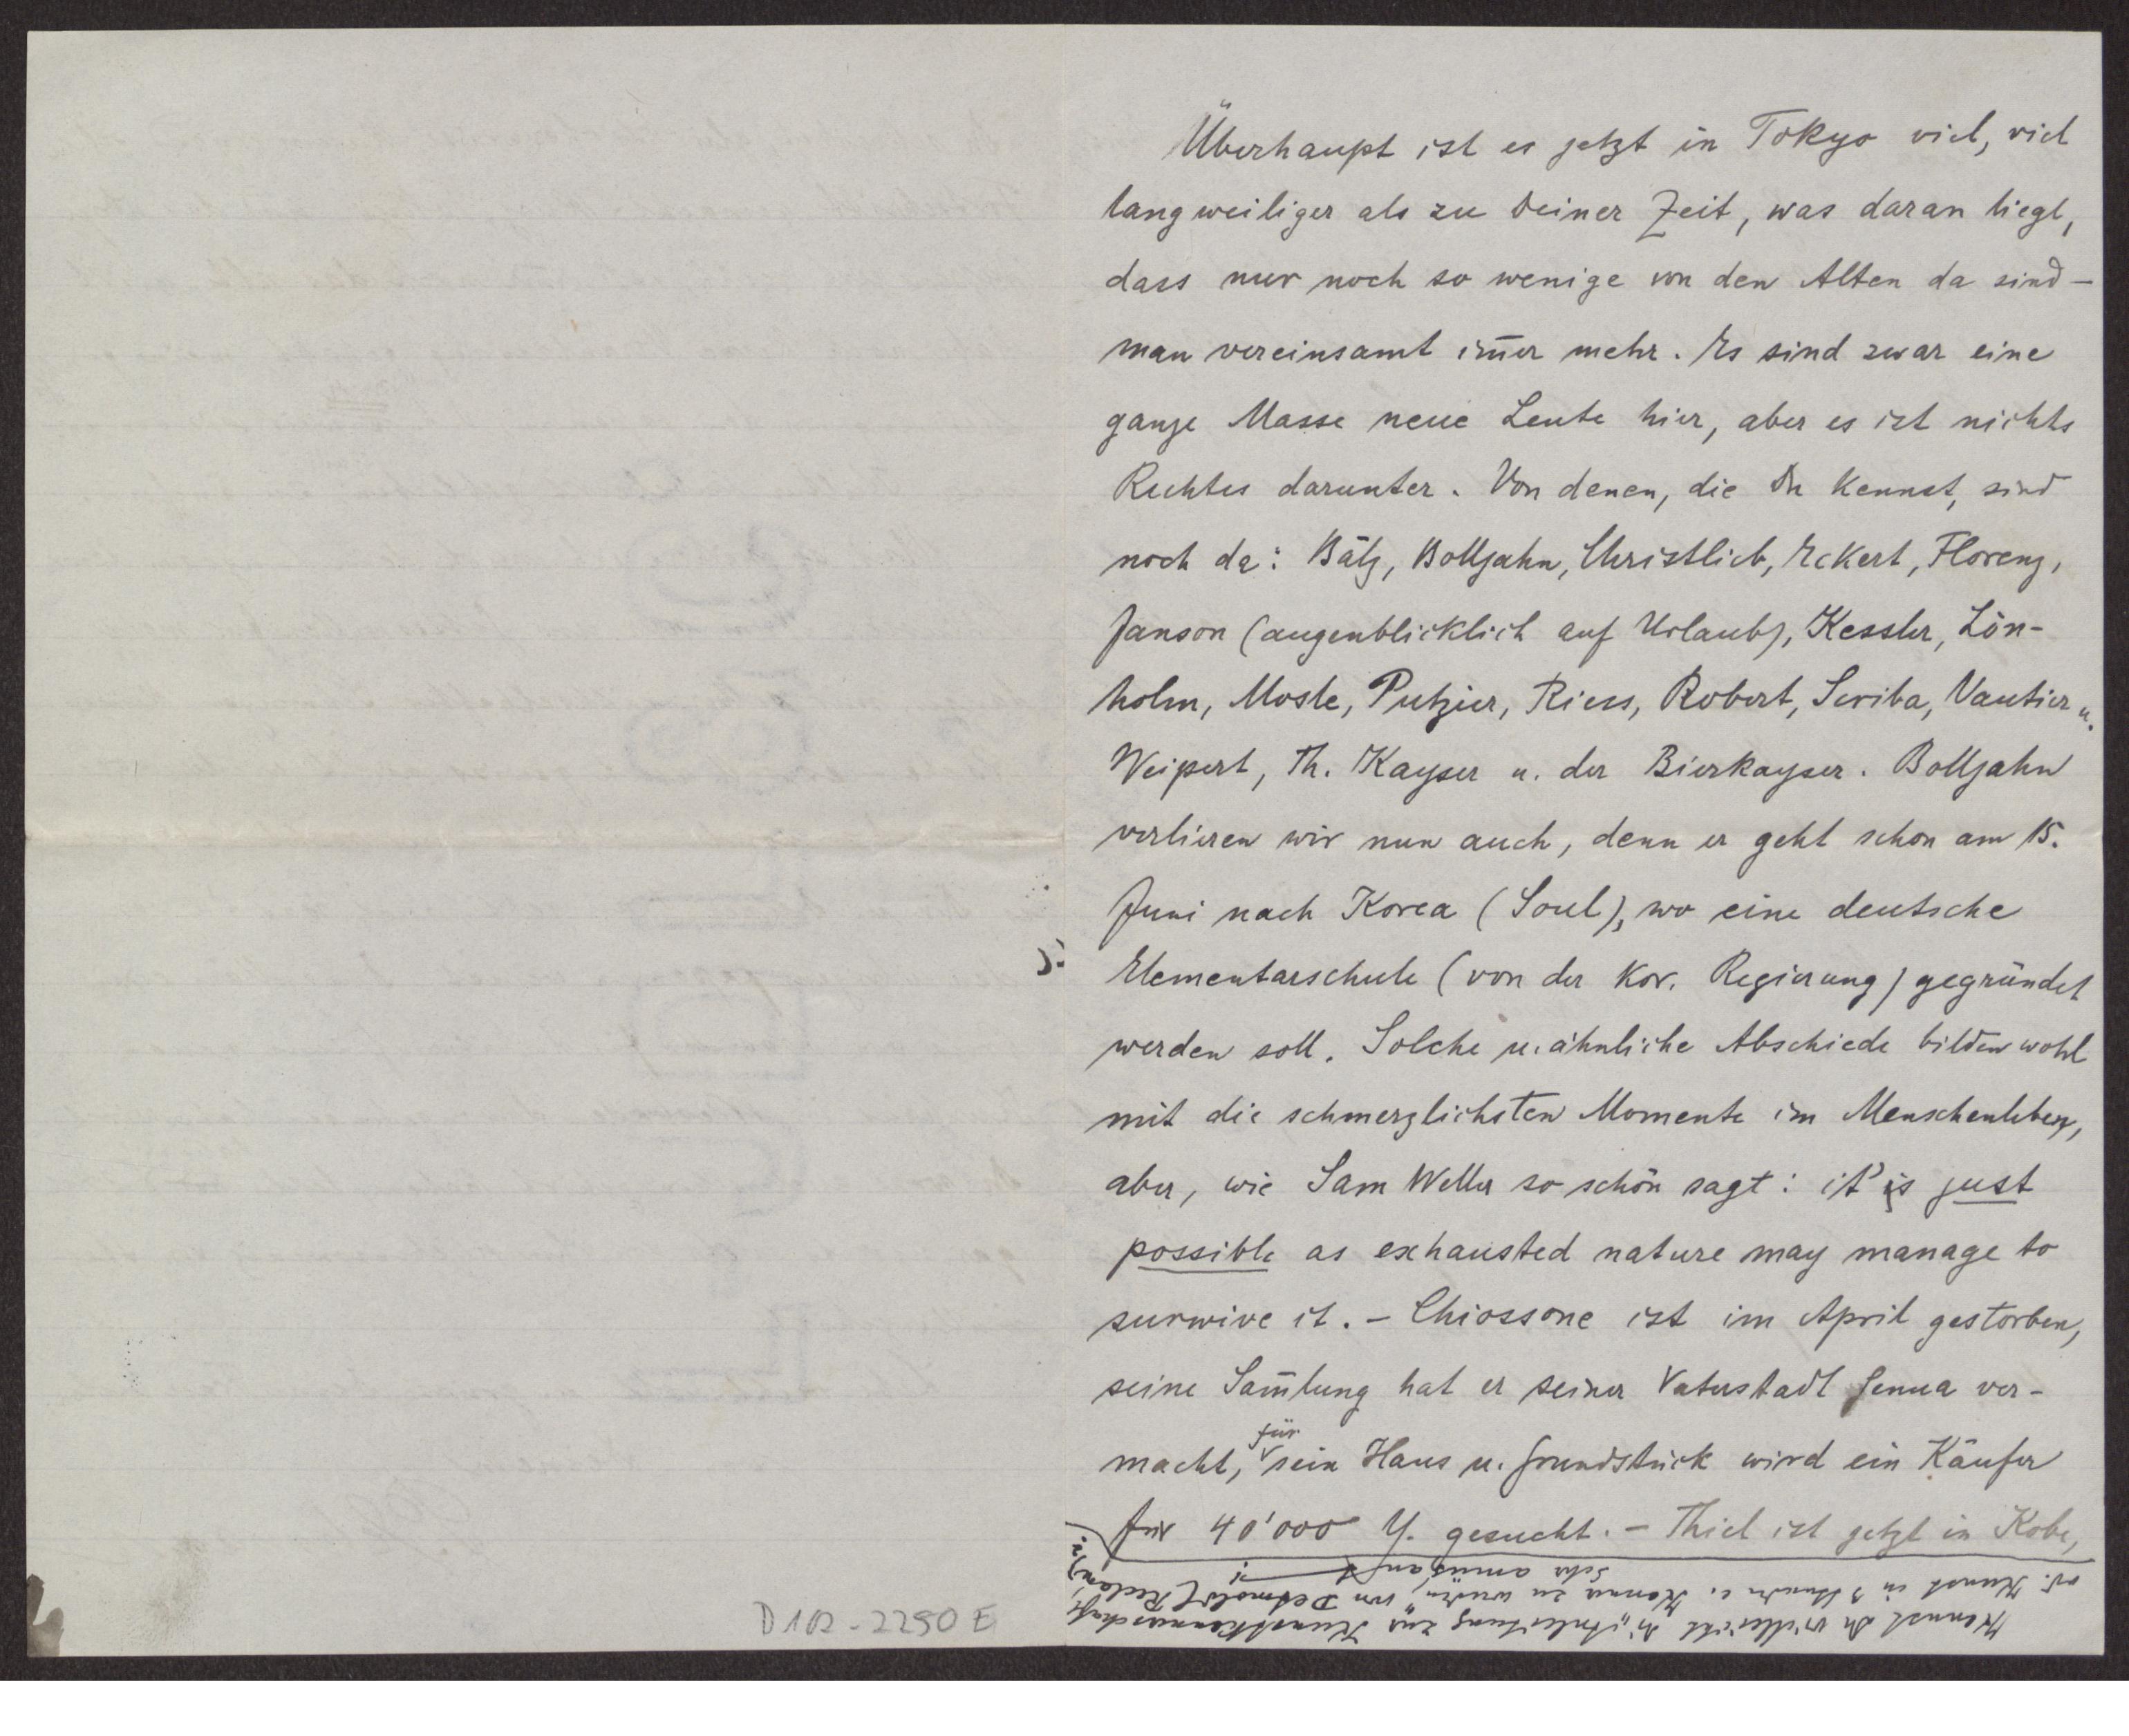 Überhaupt ist es jetzt in Tokyo viel, viel
langweiliger als zu Deiner Zeit, was daran liegt,
dass nur noch so wenige von den Alten da sind –
man vereinsamt im̄er mehr. Es sind zwar eine
ganze Masse neue Leute hier, aber es ist nichts
Rechtes darunter. Von denen, die Du kennst, sind
noch da: Bälz, Bolljahn, Christlieb, Eckert, Florenz,
Janson (augenblicklich auf Urlaub), Kessler, Lön-
holm, Mosle, Putzier, Riess, Robert, Scriba, Vautier u.
Weipert, Th. Kayser u. der Bierkayser. Bolljahn
verlieren wir nun auch, denn er geht schon am 15.
Juni nach Korea (Soul), wo eine deutsche
Elementarschule (von der Kor. Regierung) gegründet
werden soll. Solche u. ähnliche Abschiede bilden wohl
mit die schmerzlichsten Momente im Menschenleben,
aber, wie Sam Weller so schön sagt: it is just
possible as exhausted nature may manage to
surwive it. – Chiossone ist im April gestorben,
seine Sam̄lung hat er seiner Vaterstadt Genua ver-
macht, für sein Haus u. Grundstück wird ein Käufer
für 40'000 Y. gesucht. – Thiel ist jetzt in Kobe,
Kennst Du vielleicht die „Anleitung zur Kunstkennerschaft,
od. Kunst in 3 Stunden e. Kenner zu werden," von Detmold (Reclam)?
Sehr amüsant!
D 102-2250 E